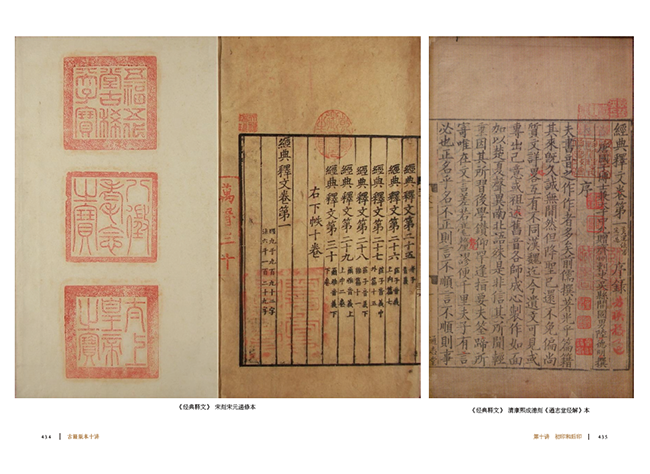 五福五代堂古稀天子寶
八徵耄念之寶
太上皇帝之寶
經典釋文第二十五
經典釋文第二十六
經典釋文第二十七
經典釋文第二十八
經典釋文第二十九
經典釋文第三十
右下帙十卷
經典釋文卷第一
經典釋文卷第一 序錄
序
夫書音之作作者多矣前儒撰著光乎篇籍
其來既久誠無間然但降聖已還不免偏尚
質文詳略互有不同漢魏迄今遺文可見或
專出己意或祖述舊音各師成心製作如面
加以楚夏聲異南北語殊是非信其所聞輕
重因其所習後學鑽仰罕逢指要夫筌蹄所
寄唯在文言差若毫釐謬便千里夫子有言
必也正名乎名不正則言不順言不順則事
《经典释文》 宋刻宋元递修本
《经典释文》 清康熙成德刻《通志堂经解》本
434 | 古籍版本十讲
第十讲 初印和后印 | 435